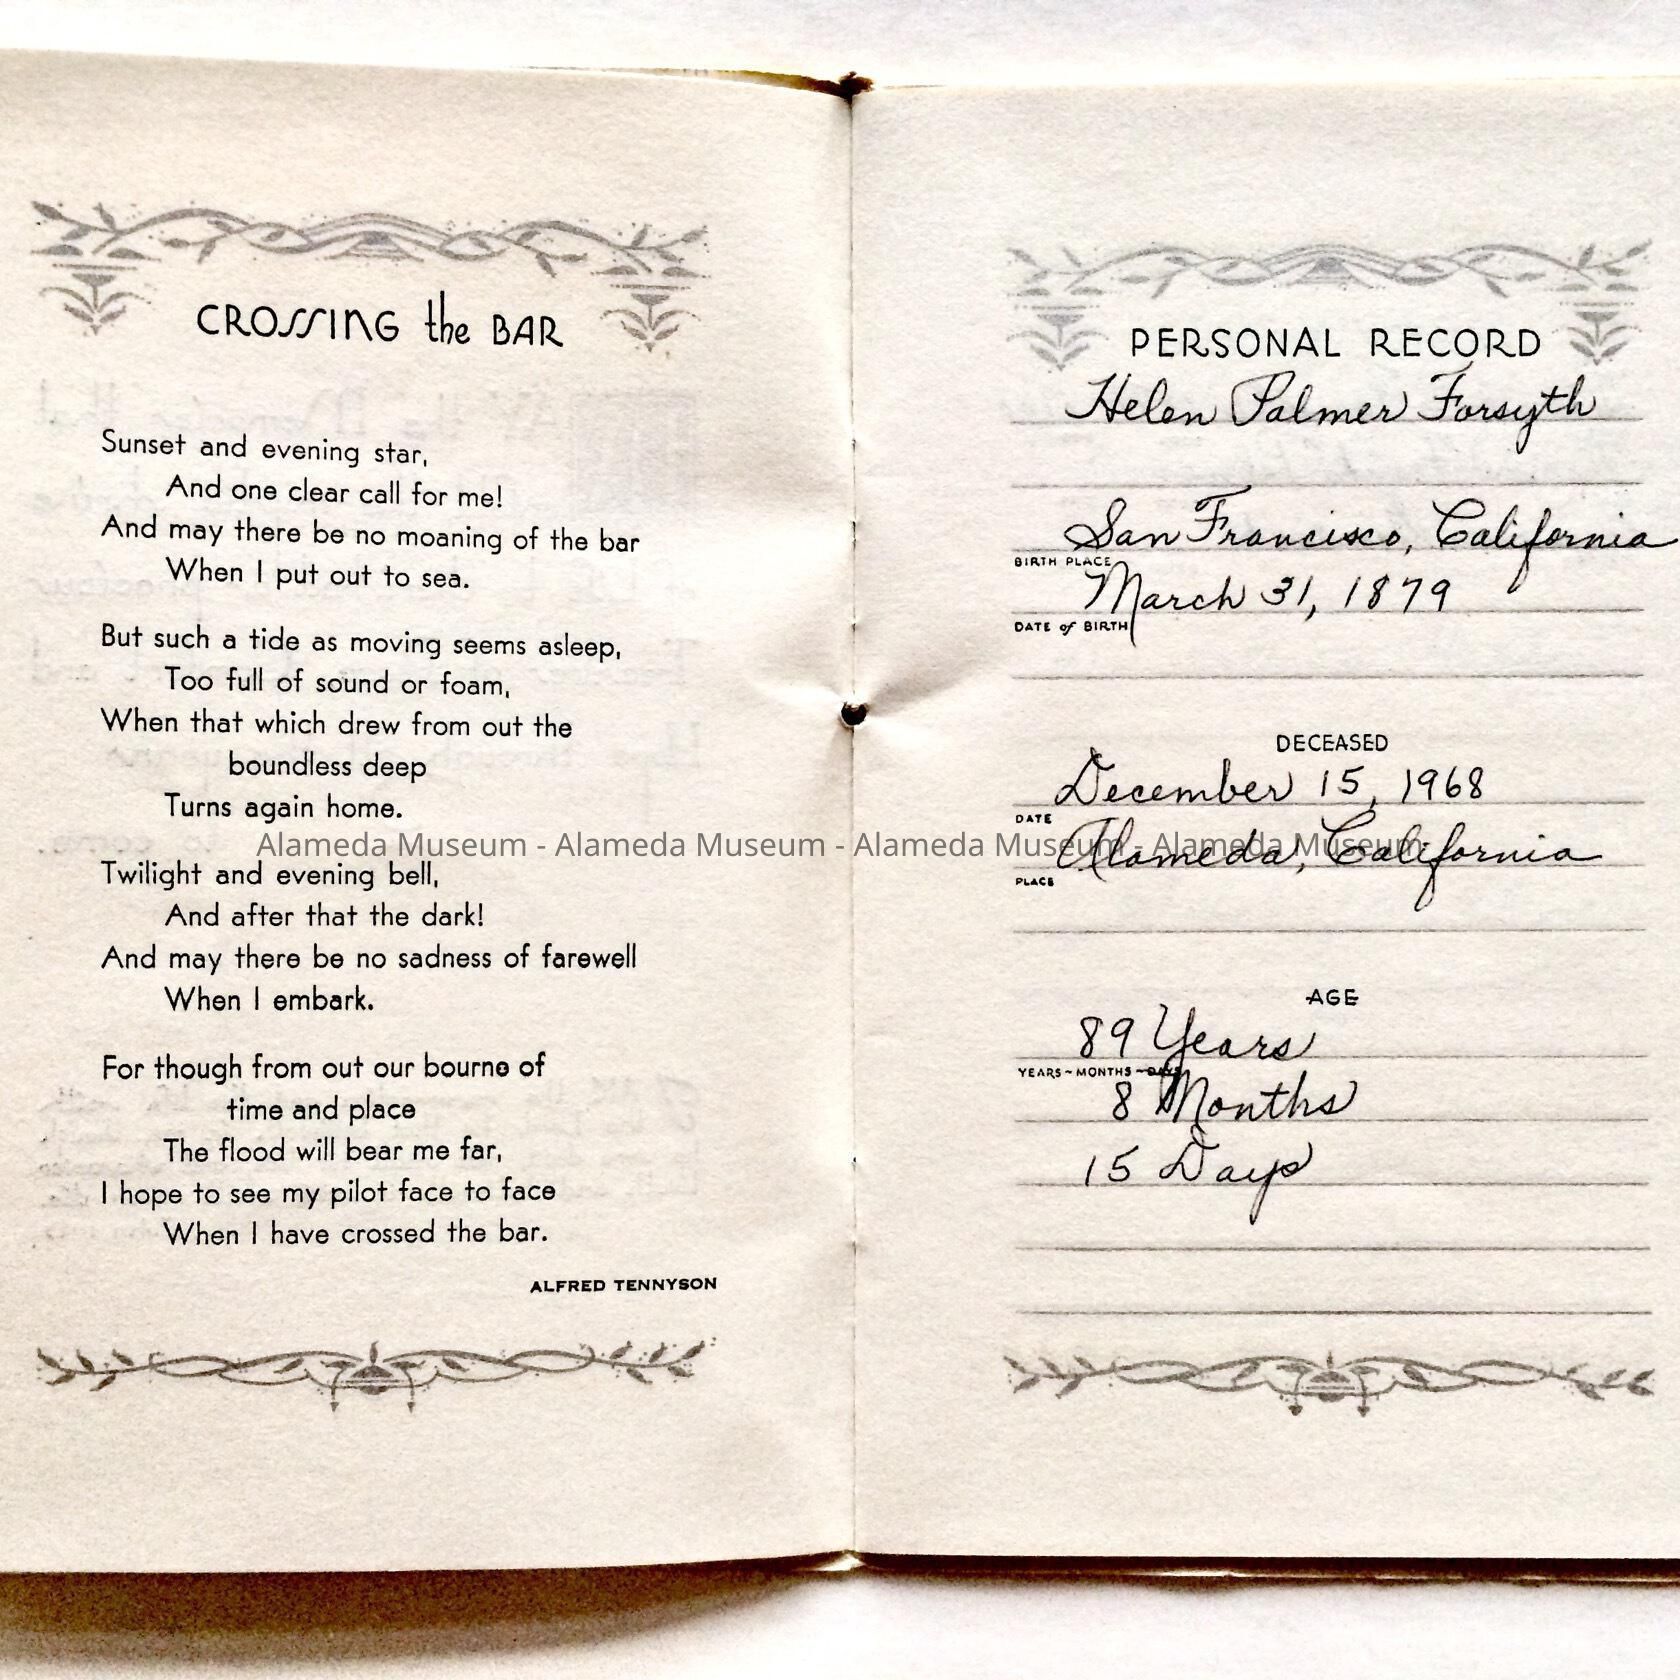 CROSSING the BAR
Sunset and evening star,
And one clear call for me!
And may there be no moaning of the bar
When I put out to sea.
But such a tide as moving seems asleep,
Too full of sound or foam,
When that which drew from out the
boundless deep
Turns again home.
Twilight and evening bell,
And after that the dark!
And may there be no sadness of farewell
When I embark.
For though from out our bourne of
time and place
The flood will bear me far,
I hope to see my pilot face to face
When I have crossed the bar.
ALFRED TENNYSON
Alameda Museum - Alameda Museum - Alameda Museum - Alameda Museum
PERSONAL RECORD
Helen Palmer Forsyth
San Francisco, California
BIRTH PLACE
March 31, 1879
DATE of BIRTH
DECEASED
December 15, 1968
DATE
Alameda, California
PLACE
AGE
89 Years
YEARS~MONTHS~DAYS
8 Months
15 Days